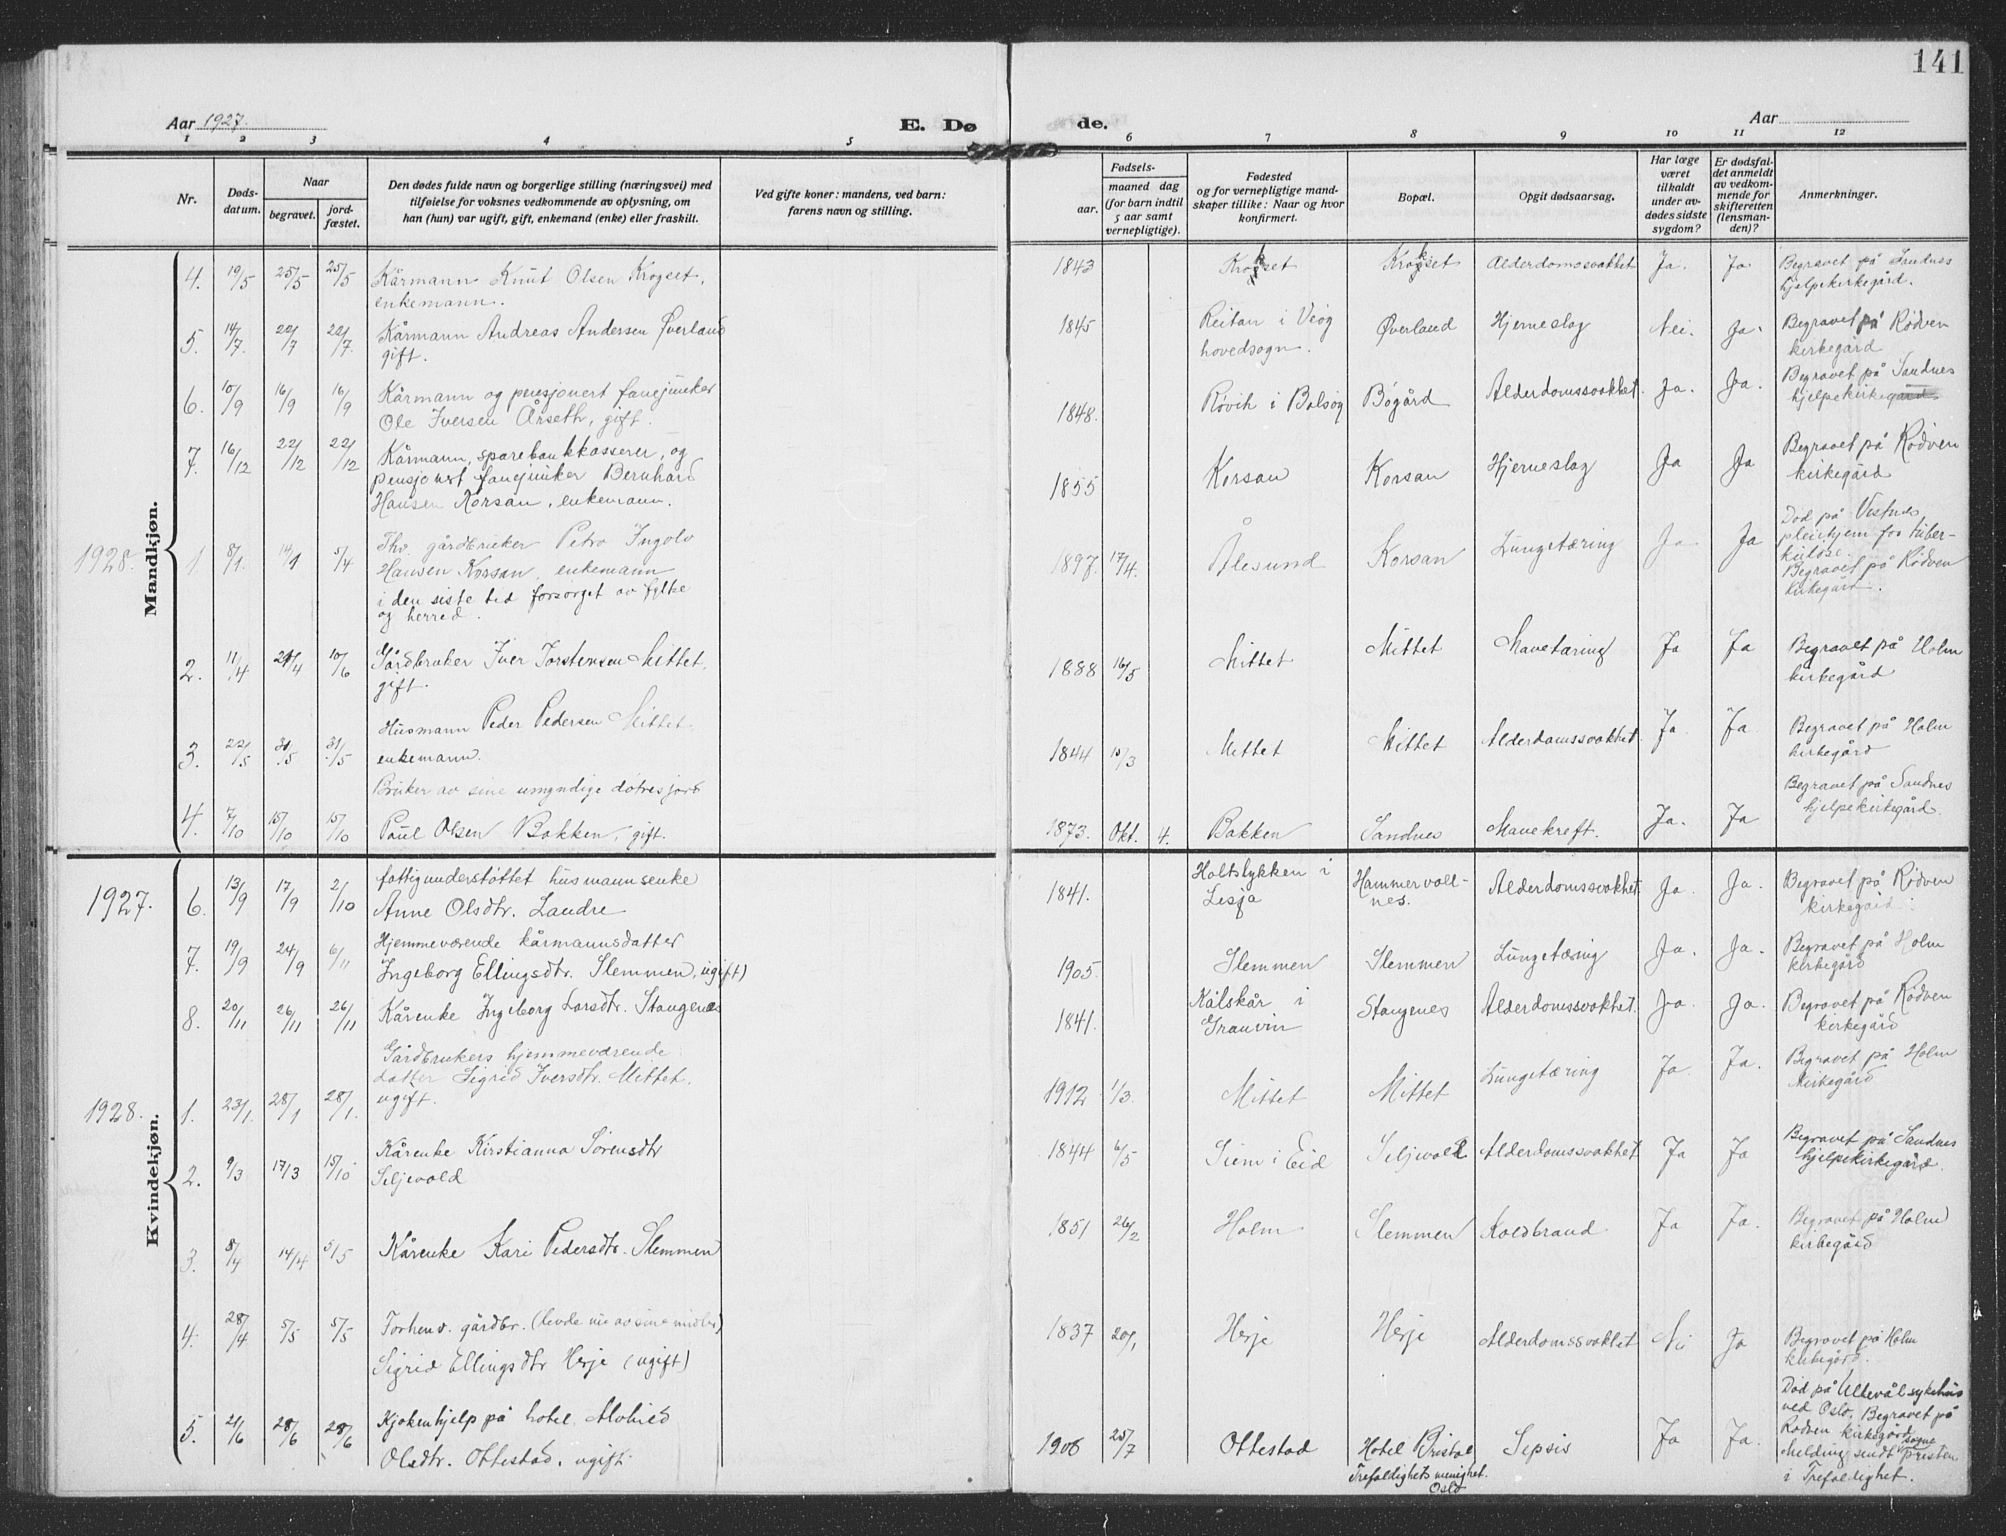 141
Aar 1927.
E. Dø
de.
Aar
1 2 3 4 5 6 7 8 9 10 11 12
Nr.
Døds-
datum.
Naar
begravet.
jord-
fæstet.
Den dødes fulde navn og borgerlige stilling (næringsvei) med
tilføielse for voksnes vedkommende av oplysning, om
han (hun) var ugift, gift, enkemand (enke) eller fraskilt.
Ved gifte koner: mandens, ved barn:
farens navn og stilling.
Fødsels-
aar.
maaned dag
(for barn indtil
5 aar samt
vernepligtige).
Fødested
og for vernepligtige mand-
skaper tillike: Naar og hvor
konfirmert.
Bopæl.
Opgit dødsaarsag.
Har læge
været
tilkaldt
under av-
dødes sidste
sygdom?
Er dødsfal-
det anmeldt
av vedkom-
mende for
skifteretten
(lensman-
den)?
Anmerkninger.
Mandkjøn.
4. 19/5 25/5 25/5 Kårmann Knut Olsen Krogset, 1843 Krokset Krokset Alderdomssvakhet Ja. Ja Begravet på Sandnes
enkemann. hjelpekirkegård.
5. 14/7. 22/7 22/7. Kårmann Andreas Andersen Øverland 1845 Reitan i Veøy Øverland Hjerneslag Nei. Ja. Begravet på Rødven
gift. hovedsogn. kirkegård
6. 10/9 16/9 16/9 Kårmann og pensjonert fanejunker 1848. Røvik i Bolsøy Bøgård Alderdomssvakhet. Ja. Ja. Begravet på Sandnes
Ole Iversen Årseth, gift. hjelpekirkegård
7. 16/12 22/12 22/12 Kårmann, sparebankkasserer, og 1855 Korsan Korsan Hjerneslag Ja Ja Begravet på Rødven
pensjonert fanejunker Bernhard kirkegård
Hansen Korsan, enkemann.
1928. 1 8/1. 14/1 5/4 Fhv. gårdbruker Petro Ingolv 1897. 17/4. Ålesund Korsan Lungetæring Ja Ja Død på Vestnes
Hansen Korsan, enkemann pleiehjem for tuber-
i den siste tid forsorget av fylke kulose.
og herred. Begravet på Rødven
kirkegård.
2. 11/4 21/4 10/6 Gårdbruker Iver Torstensen Mittet, 1888 16/5 Mittet Mittet Mavetæring Ja Ja Begravet på Holm
gift. kirkegård
3. 22/5 31/5 31/5 Husmann Peder Pedersen Mittet. 1844 15/3 Mittet Mittet Alderdomssvakhet. Ja. Ja. Begravet på Holm
enkemann. kirkegård
4. 7/10 15/10 15/10 Bruker av sine umyndige døtres jord 1873. Okt. 4. Bakken Sandnes Mavekreft. Ja. Ja Begravet på Sandnes
Paul Olsen Bakken, gift. hjelpekirkegård.
Kvindekjøn.
1927. 6. 13/9 17/9 2/10 fattigunderstøttet husmannsenke 1841. Holtslykken i Hammervoll- Alderdomssvakhet. Ja. Ja. Begravet på Rødven
Anne Olsdtr. Landre Lesja nes. kirkegård.
7. 19/9 24/9 6/11 Hjemmeværende kårmannsdatter 1905. Slemmen Slemmen Lungetæring Ja. Ja. Begravet på Holm
Ingeborg Ellingsdtr. Slemmen, ugift) kirkegård
8. 20/11 26/11 26/11 Kårenke Ingeborg Larsdtr. Stangenes 1841. Kålskår i Stangenes Alderdomssvakhet. Ja. Ja. Begravet på Rødven
Granvin kirkegård
1928. 1. 23/1. 28/1 28/1. Gårdbrukers hjemmeværende 1912 1/3. Mittet Mittet Lungetæring Ja Ja. Begravet på Holm
datter Sigrid Iversdtr. Mittet, kirkegård
ugift.
2. 9/3 17/3 15/10 Kårenke Kirstianna Sørensdtr 1844 6/5 Siem i Eid Seljevold Alderdomssvakhet Ja Ja Begravet på Sandnes
Seljevold hjelpekirkegård.
3. 8/4 14/4 5/5 Kårenke Kari Pedersdtr. Slemmen 1851 26/2 Holm Slemmen Koldbrand Ja Ja. Begravet på Holm
kirkegård
4. 28/4 5/5 5/5 Forhenv. gårdbr. (levde nu av sine midler) 1837 20/1 Herje Herje Alderdomssvakhet Nei Ja Begravet på Holm
Sigrid Ellingsdtr Herje (ugift) kirkegård.
5. 21/6 28/6 28/6 Kjøkenhjelp på hotel Alvhild 1906 25/7 Ottestad Hotel Bristol Sepsis Ja Ja. Død på Ullevål sykehus
Olsdtr. Ottestad, ugift. Trefoldighets menighet. ved Oslo. Begravet på
Oslo Rødven kirkegård
Melding sendt sogne
presten
i Trefoldighet.